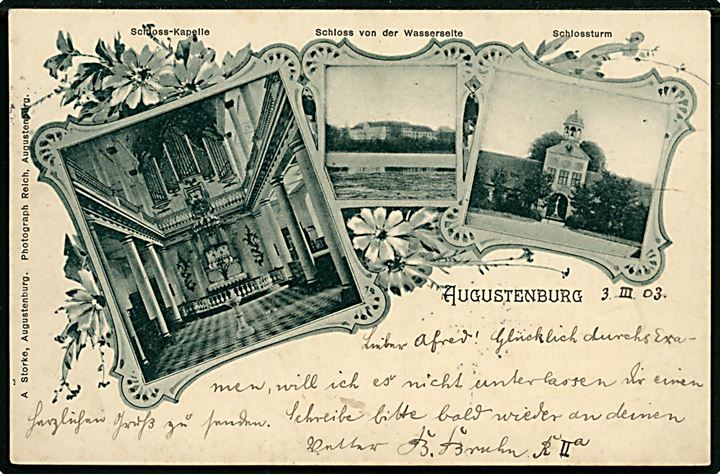 Schloss-Kapelle
Schloss von der Wasserseite
Schlossturm
A Storke, Augustenburg. Photograph Reich, Augustenburg.
AUGUSTENBURG 3. III 03.
Lieber Afred! Glücklich durchs Exa-
men, will ich es nicht unterlassen dir einen
herzlichen Gruß zu senden. Schreibe bitte bald wieder an deinen
Vetter B. Bruhn R IIa